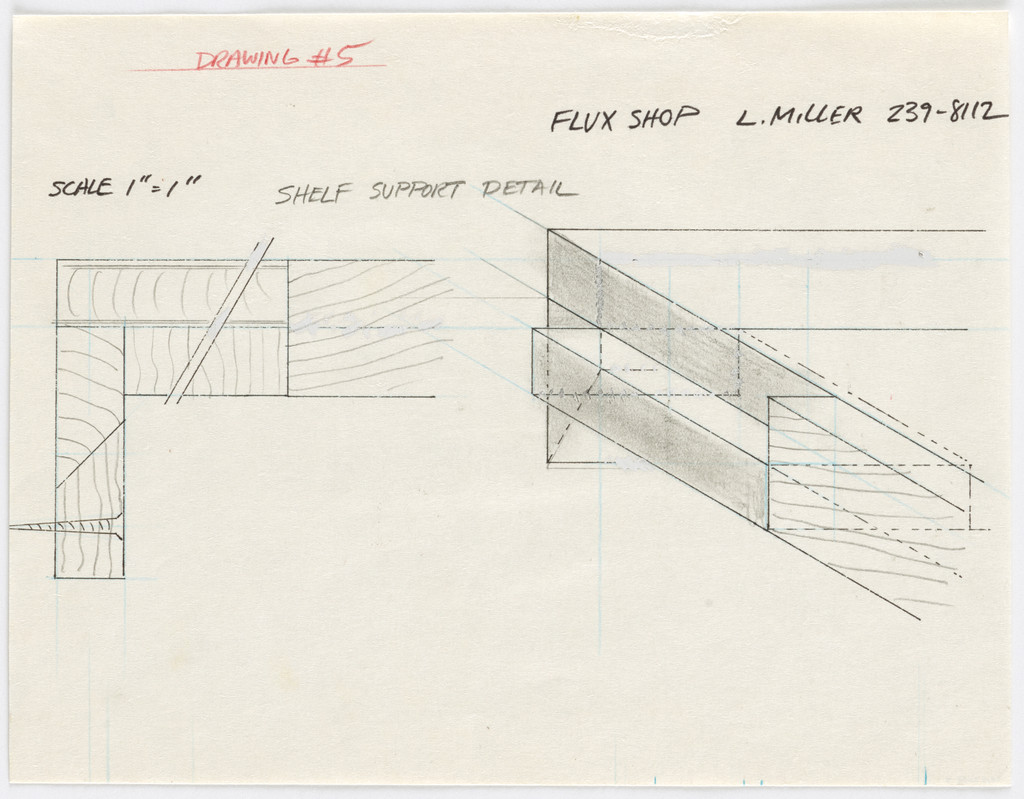 DRAWING #5
FLUX SHOP L. MILLER 239-8112
SCALE 1" = 1" SHELF SUPPORT DETAIL